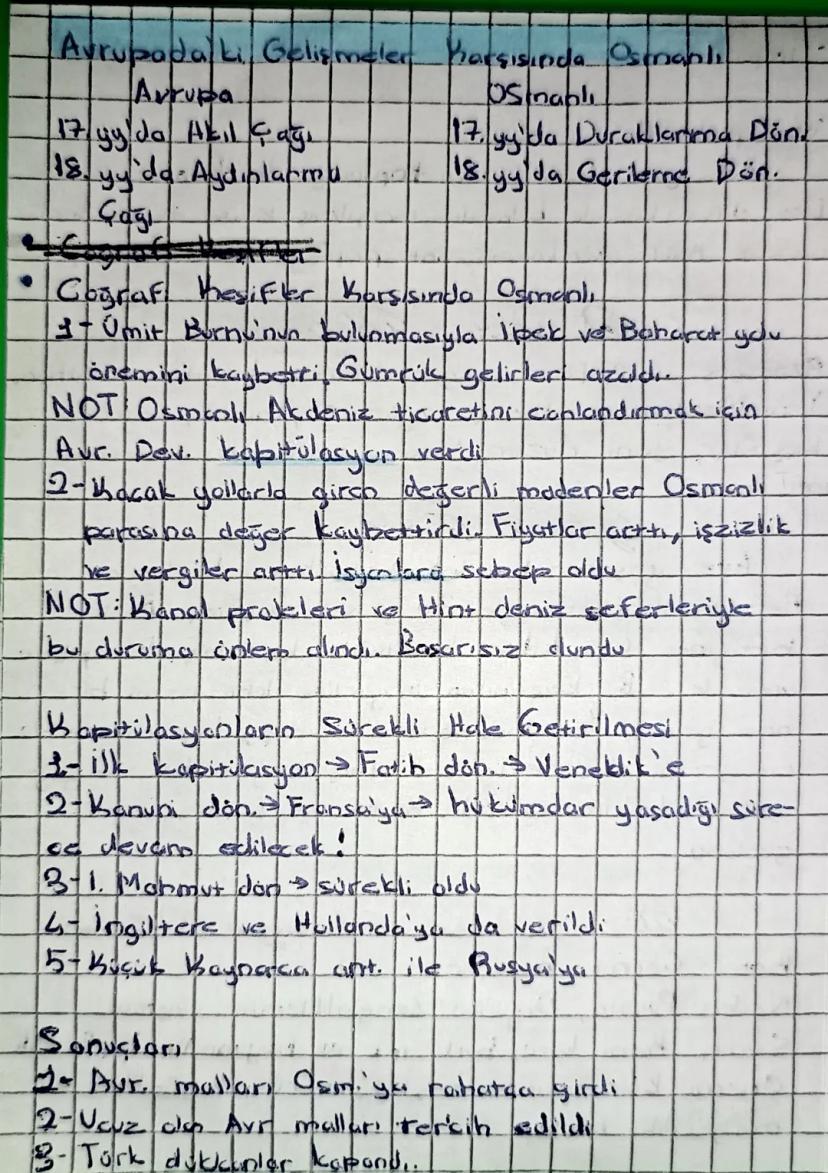 Avrupadaki Gelişmeler Karşısında Osmanlı
Avrupa Osmanlı
17. yy'da Akıl Çağı 17. yy'da Duraklama Dön.
18. yy'da Aydınlanma 18. yy'da Gerileme Dön.
Çağı
• Coğraf Keşifler
• Coğraf Keşifler Karşısında Osmanlı
1- Ümit Burnu'nun bulunmasıyla İpek ve Baharat yolu
önemini kaybetti. Gümrük gelirleri azaldı.
NOT Osmanlı Akdeniz ticaretini canlandırmak için
Avr. Dev. kapitülasyon verdi
2- Kaçak yollarla giren değerli madenler Osmanlı
parasına değer kaybettirdi. Fiyatlar arttı, işzizlik
ve vergiler arttı. İsyanlara sebep oldu
NOT: Kanal projeleri ve Hint deniz seferleriyle
bu duruma önlem alındı. Başarısız olundu
Kapitülasyonların Sürekli Hale Getirilmesi
1- İlk kapitülasyon → Fatih dön. → Venedik'e
2- Kanuni dön. → Fransa'ya → hükümdar yaşadığı süre-
ce devam edilecek!
3- 1. Mahmut dön → sürekli oldu
4- İngiltere ve Hollanda'ya da verildi
5- Küçük Kaynarca ant. ile Rusya'ya
Sonuçları
1- Avr. malları Osm.'ya rahatça girdi
2- Ucuz olan Avr malları tercih edildi
3- Türk dükkanlar kapandı.